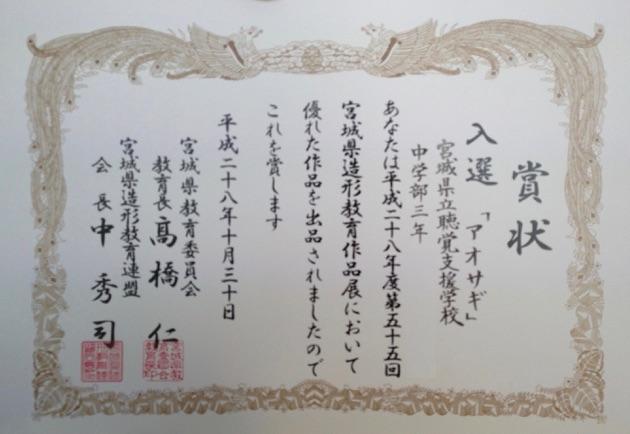 賞状
入選 「アオサギ」
宮城県立聴覚支援学校
中学部三年
あなたは平成二十八年度第五十五回
宮城県造形教育作品展において
優れた作品を出品されましたので
これを賞します
平成二十八年十月三十日
宮城県教育委員会
教育長 髙橋 仁
宮城県造形教育連盟
会長 中 秀司